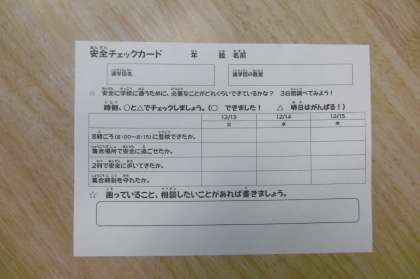 安全チェックカード　年　組　名前
通学団名　通学団の教室
☆ 安全に学校に通うために、必要なことがどれくらいできているかな？　3日間調べてみよう！
時刻、○と△でチェックしましょう。(○ できました！　△ 明日はがんばる！)
12/13　12/14　12/15
火　水　木
8時ごろ(8:00~8:15)に登校できたか。
集合場所で安全に過ごせたか。
2列で安全に歩いてきたか。
集合時刻を守れたか。
☆ 困っていること、相談したいことがあれば書きましょう。